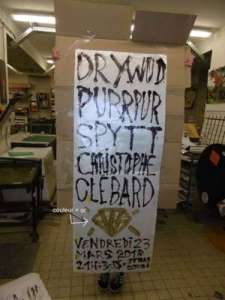 DRYWUD
PURRPUR
SPYTT
CHRISTOPHE
CLEBARD
couleur
VENDREDI 23
MARS 2018
21H